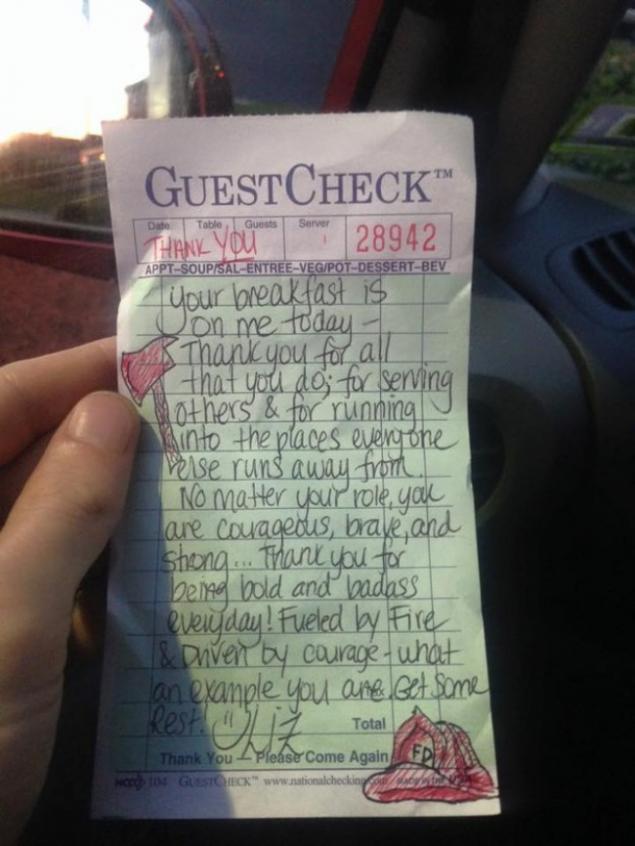 GUESTCHECK™
Date Table Guests Server
THANK YOU 28942
APPT-SOUP/SAL-ENTREE-VEG/POT-DESSERT-BEV
your breakfast is
on me today -
Thank you for all
that you do; for serving
others & for running
into the places everyone
else runs away from.
No matter your role, you
are courageous, brave, and
strong... Thank you for
being bold and badass
everyday! Fueled by Fire
& Driven by courage - what
an example you are. Get some
Rest! Liz
Total
FD
Thank You — Please Come Again
104 GUESTCHECK™ www.nationalchecking.com MADE IN THE